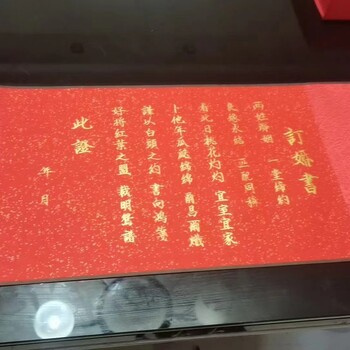 訂婚書
兩姓聯姻 一堂締約
良緣永結 匹配同稱
看此日桃花灼灼 宜室宜家
卜他年瓜瓞綿綿 爾昌爾熾
謹以白頭之約 書向鴻箋
好將紅葉之盟 載明鴛譜
此證
年 月